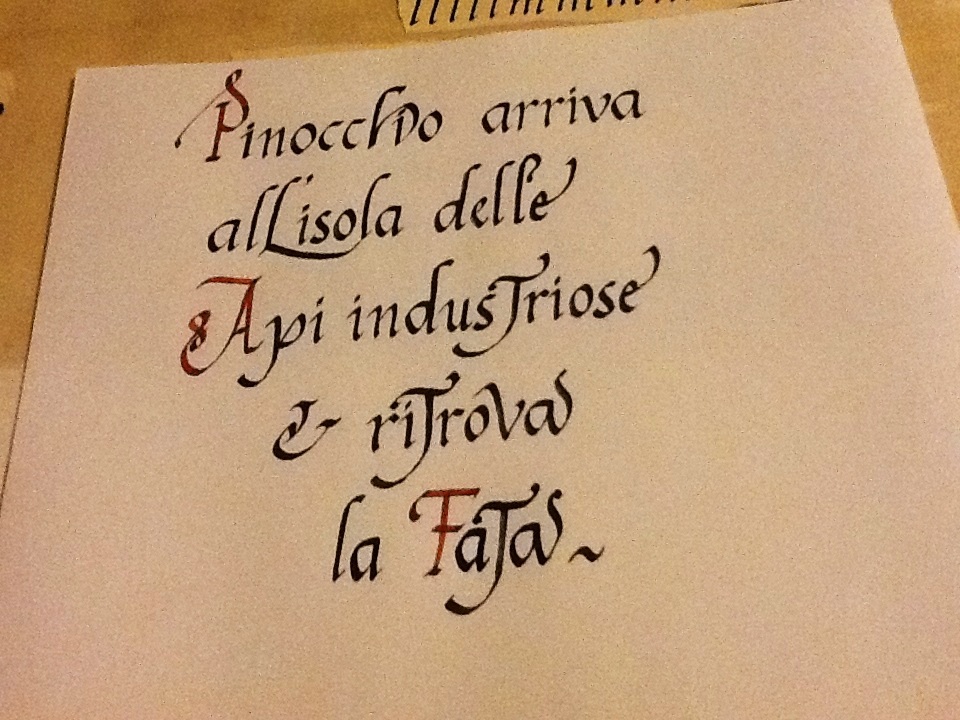 Pinocchio arriva
all'isola delle
Api industriose
& ritrova
la Fata ~